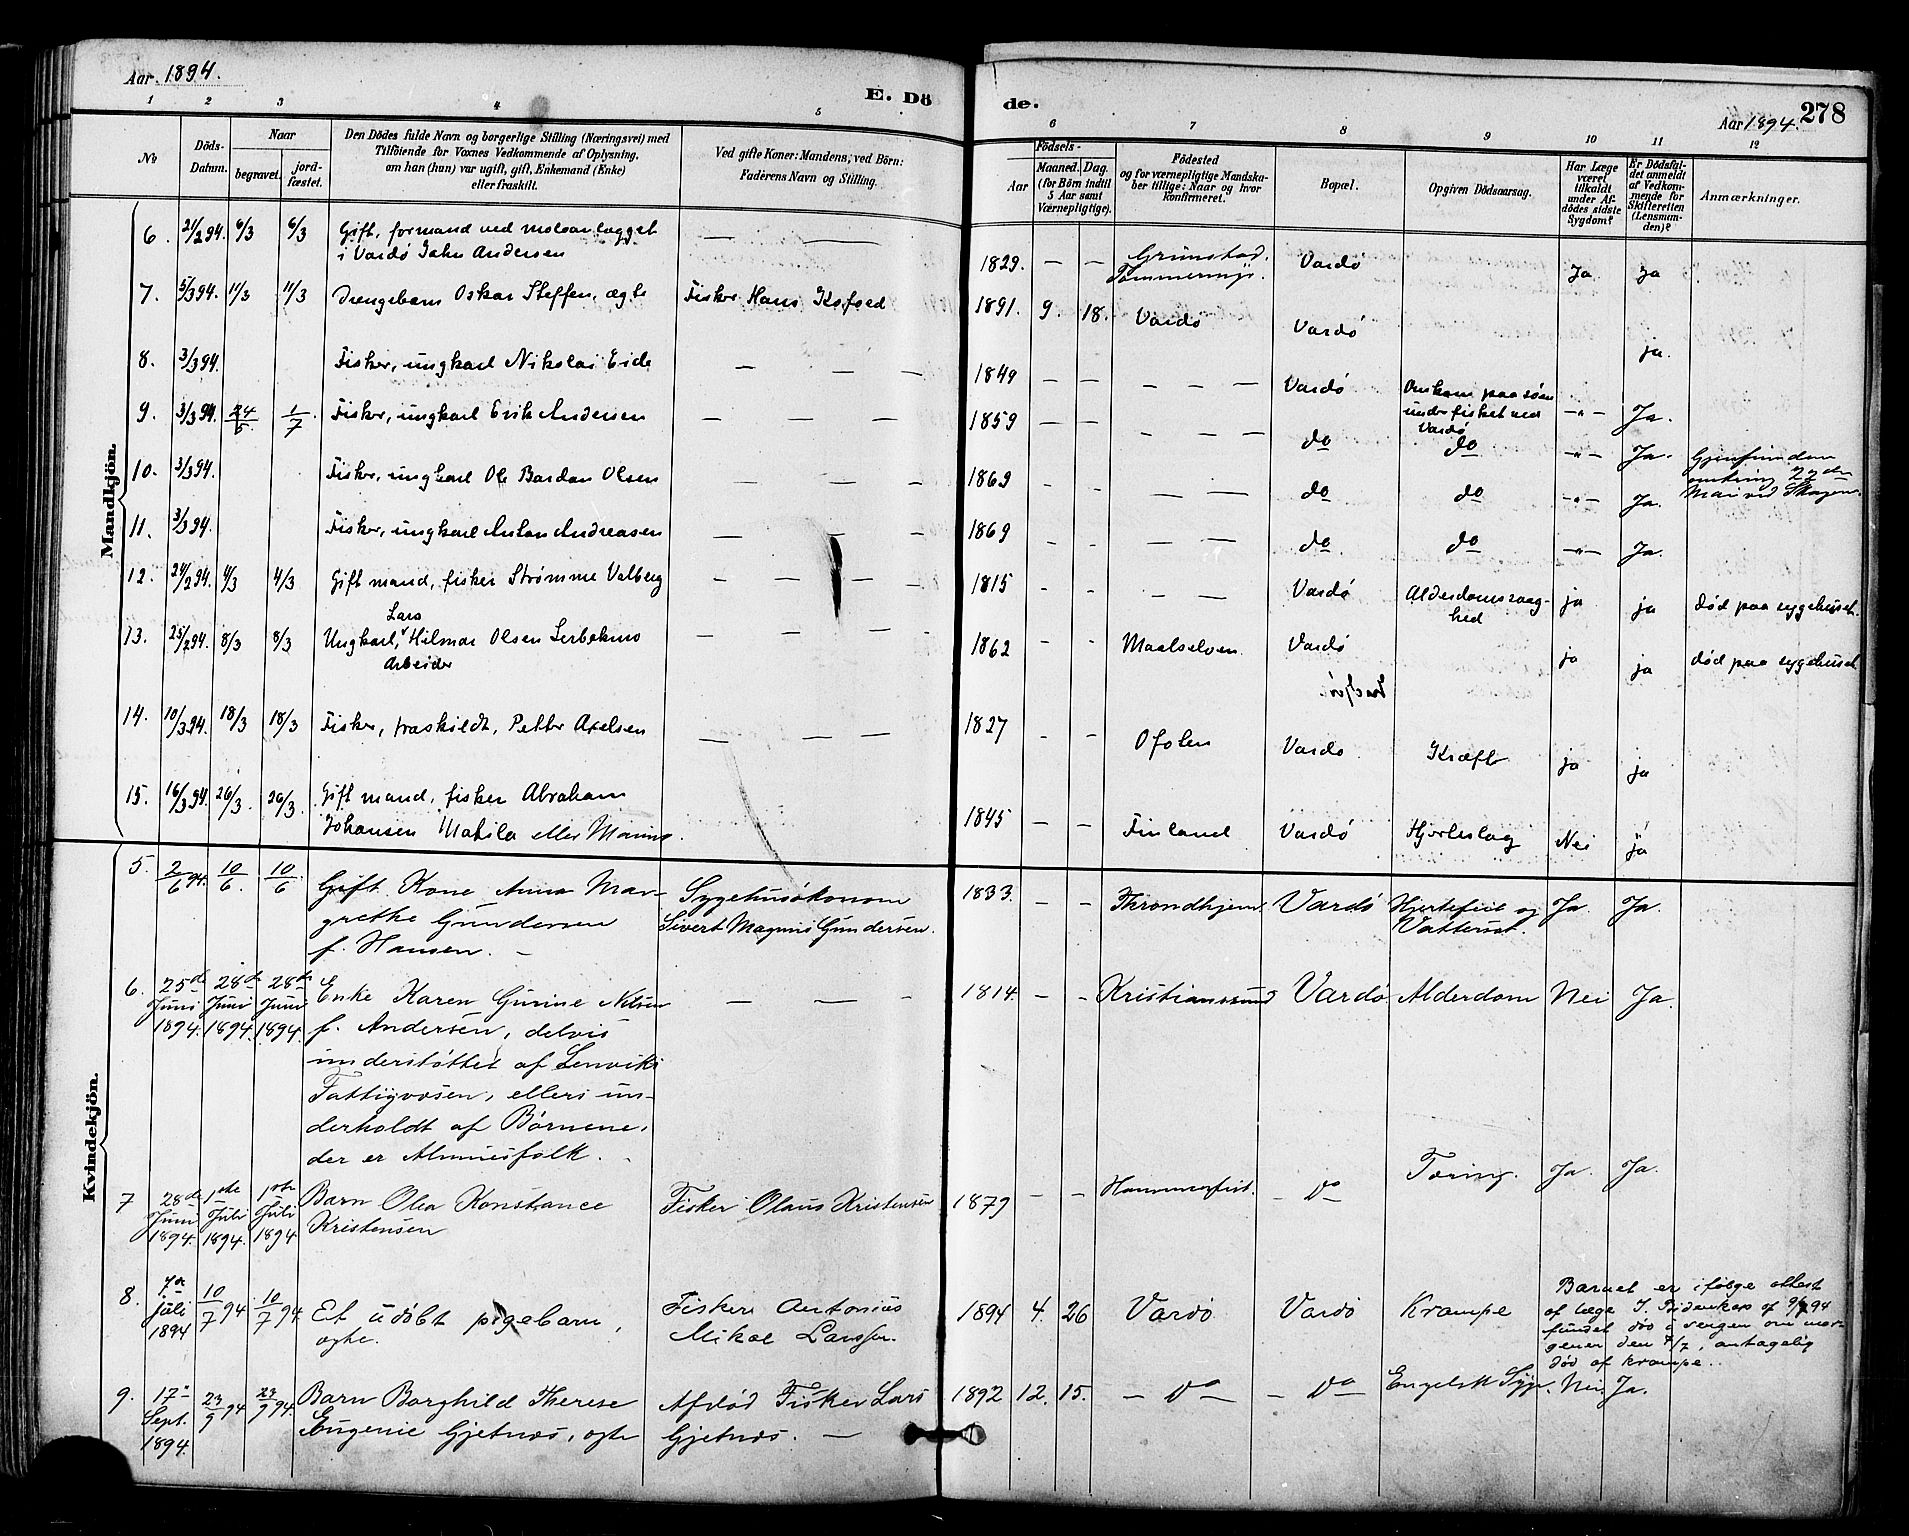 Aar. 1894.
E. Dö
de.
278
Aar 1894.
1 2 3 4 5 6 7 8 9 10 11 12
No
Döds-
Datum.
Naar
begravet.
jord-
fæstet.
Den Dödes fulde Navn og borgerlige Stilling (Næringsvei) med
Tilföiende for Voxnes Vedkommende af Oplysning,
om han (hun) var ugift, gift, Enkemand (Enke)
eller fraskilt.
Ved gifte Koner: Mandens, ved Börn:
Faderens Navn og Stilling.
Födsels-
Aar
Maaned. Dag.
(for Börn indtil
5 Aar samt
Værnepligtige).
Födested
og for værnepligtige Mandska-
ber tillige: Naar og hvor
konfirmeret.
Bopæl.
Opgiven Dödsaarsag.
Har Læge
været
tilkaldt
under Af-
dödes sidste
Sygdom?
Er Dödsfal-
det anmeldt
af Vedkom-
mende for
Skifteretten
(Lensman-
den)?
Anmærkninger.
Mandkjön.
6. 21/2 94. 6/3 6/3 Gift, formand ved moloanlægget
i Vardø John Andersen
— —
1829. — — Grimstad.
Vardø Ja ja
7. 5/3 94. 11/3 11/3 Drengebarn Oskar Steffen, ægte Fisker Hans Kofoed
1891. 9. 18. Vardø Vardø ja.
8. 3/3 94. Fisker, ungkarl Nikolai Eide — — —
1849 — — — — — Vardø Omkom paa søen
under fisket ved
Vardø
—"— Ja.
9. 3/3 94. 24/5 1/7. Fisker, ungkarl Erik Andersen — — —
1859 — — — — — do do —"— Ja. Gjenfunden
omkring 24de
Mai ved Skagen.
10. 3/3 94. Fisker, ungkarl Ole Bardan Olsen — — —
1869 - - — — do do —"— Ja.
11. 3/3 94. Fisker, ungkarl Anton Andreasen — — -
1869 - - — — do. do —"— Ja.
12. 24/2 94. 4/3 4/3 Gift mand, fisker Strømme Valberg — — — -
1815 - - — — Vardø Alderdomssvag-
hed
ja ja død paa sygehuset.
Lars
13. 25/2 94. 8/3 8/3 Ungkarl, Hilmar Olsen
Arbeider
— — — -
1862 - - Maalselven. Vardø ja ja død paa sygehuset
14. 10/3 94. 18/3 18/3 Fisker, fraskildt, Petter Axelsen — — —
1827 - - Ofoten Vardø Kræft ja ja
15. 16/3 94. 26/3. 26/3. Gift mand, fisker Abraham
Johansen Matila eller Manns.
1845 — — Finland Vardø Hjerteslag Nei ja
Kvindekjön.
5. 2/6 94. 10/6. 10/6. Gift Kone Anna Mar-
grethe Gundersen
f. Hansen. —
Sygehusøkonom
Sivert Magnus Gundersen.
1833. — — Throndhjem. Vardø Hjertefeil og
Vattersot.
Ja. Ja.
6. 25de
Juni
1894. 28de
Juni
1894. 28de
Juni
1894. Enke Karen Gurine Nilsen
f. Andersen, delvis
understøttet af Lenviks
Fattigvæsen, ellers un-
derholdt af Børnene,
der er Almuesfolk.
— — -
1814. — — Kristianssund Vardø Alderdom Nei Ja.
7 28de
Juni
1894. 1ste
Juli
1894. 1ste
Juli
1894 Barn Olea Konstance
Kristensen
Fisker Olaus Kristensen
1879 — — Hammerfest. - Do Tæring. Ja. Ja.
8. 7de
juli
1894 10/7 94 10/7 94. Et udøbt pigebarn,
ægte.
Fisker Antonius
Mikal Larssen.
1894 4. 26 Vardø Vardø Krampe Barnet er ifølge attest
af læge J. af 9/7 94
fundet død i sengen om mor-
genen den 7/7, antagelig
død af krampe..
9. 17de
Sept.
1894. 23/9 94 23/9 94. Barn Borghild Therese
Eugenie Gjetnæs, ægte
Afdød Fisker Lars
Gjetnæs. —
1892 12. 15. — Do — Do Engelsk Syge. Nei. Ja.